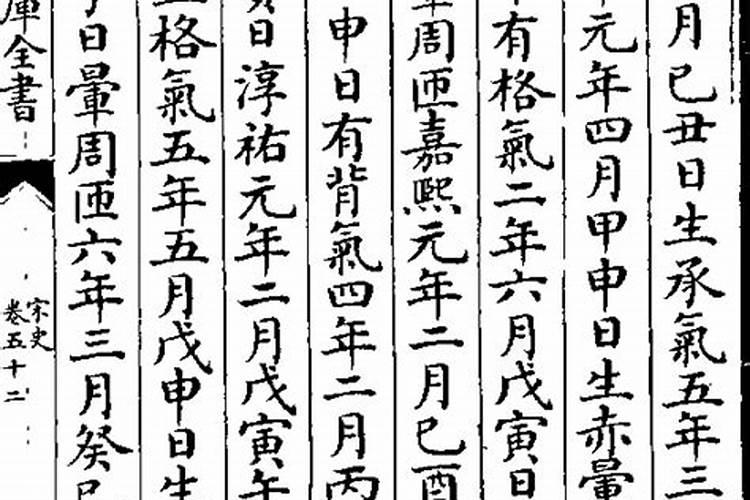 月己丑日生承氣五年三
元年四月甲申日生赤暈
有格氣二年六月戊寅日
周匝嘉熙元年二月己酉
申日有背氣四年二月丙
日淳祐元年二月戊寅午
格氣五年五月戊申日生
日暈周匝六年三月癸
庫全書
宋史
卷五十二